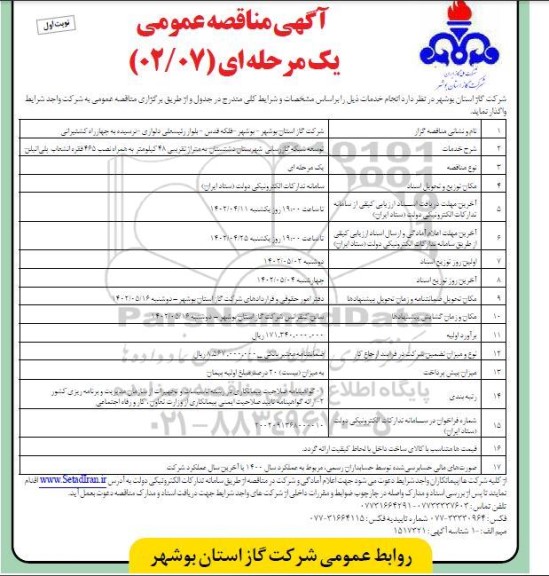 آگهی مناقصه عمومی
یک مرحله ای (۰۲/۰۷)
نوبت اول
شرکت ملی گاز ایران
شرکت گاز استان بوشهر
شرکت گاز استان بوشهر در نظر دارد انجام خدمات ذیل را براساس مشخصات و شرایط کلی مندرج در جدول و از طریق برگزاری مناقصه عمومی به شرکت واجد شرایط
واگذار نماید.
۱ نام و نشانی مناقصه گزار شرکت گاز استان بوشهر - بوشهر - فلکه قدس - بلوار رئیسعلی دلواری - نرسیده به چهارراه کشتیرانی
۲ شرح خدمات توسعه شبکه گازرسانی شهرستان دشتستان به متراژ تقریبی ۴۸ کیلومتر به همراه نصب ۴۶۵ فقره انشعاب پلی اتیلن
۳ نوع مناقصه یک مرحله ای
۴ مکان توزیع و تحویل اسناد سامانه تدارکات الکترونیکی دولت (ستاد ایران)
۵ آخرین مهلت دریافت اسناد ارزیابی کیفی از سامانه
تدارکات الکترونیکی دولت (ستاد ایران) تا ساعت ۱۹:۰۰ روز یکشنبه ۱۴۰۲/۰۴/۱۱
۶ آخرین مهلت اعلام آمادگی و ارسال اسناد ارزیابی کیفی
از طریق سامانه تدارکات الکترونیکی دولت (ستاد ایران) تا ساعت ۱۹:۰۰ روز یکشنبه ۱۴۰۲/۰۴/۲۵
۷ اولین روز توزیع اسناد دوشنبه ۱۴۰۲/۰۵/۰۲
۸ آخرین روز توزیع اسناد چهارشنبه ۱۴۰۲/۰۵/۰۴
۹ مکان تحویل ضمانتنامه و زمان تحویل پیشنهادها دفتر امور حقوقی و قراردادهای شرکت گاز استان بوشهر - دوشنبه ۱۴۰۲/۰۵/۱۶
۱۰ مکان و زمان گشایش پیشنهادها سالن کنفرانس شرکت گاز استان بوشهر - دوشنبه ۱۴۰۲/۰۵/۱۶
۱۱ برآورد اولیه ۱۷۱,۳۴۰,۰۰۰,۰۰۰ ریال
۱۲ نوع و میزان تضمین شرکت در فرایند ارجاع کار ضمانتنامه معتبر بانکی ۸,۵۶۷,۰۰۰,۰۰۰ ریال
۱۳ میزان پیش پرداخت به میزان (بیست) ۲۰ درصد مبلغ اولیه پیمان
۱۴ رتبه بندی ۱- گواهینامه صلاحیت پیمانکاری در رشته تاسیسات و تجهیزات از سازمان مدیریت و برنامه ریزی کشور
۲- ارائه گواهینامه تائید صلاحیت ایمنی پیمانکاری از وزارت تعاون، کار و رفاه اجتماعی
۱۵ شماره فراخوان در سامانه تدارکات الکترونیکی دولت
(ستاد ایران)
۱۶ قیمت ها متناسب با کالای ساخت داخل با لحاظ کیفیت ارائه گردد.
۱۷ صورت‌های مالی حسابرسی‌شده توسط حسابداران رسمی، مربوط به عملکرد سال ۱۴۰۰ یا آخرین سال عملکرد شرکت
از کلیه شرکت ها/پیمانکاران واجد شرایط دعوت می شود جهت اعلام آمادگی و شرکت در مناقصه از طریق سامانه تدارکات الکترونیکی دولت به آدرس www.SetadIran.ir اقدام
نمایند تا پس از بررسی اسناد و مدارک واصله در چارچوب ضوابط و مقررات داخلی از شرکت های واجد شرایط جهت دریافت اسناد و مدارک مناقصه دعوت بعمل آید.
تلفن تماس: ۰۷۷۳۳۳۳۷۶۰۳-۰۷۷۳۱۶۶۴۲۹۱
فکس: ۳۳۳۳۰۹۶۴-۰۷۷ شماره تاییدیه فکس: ۳۱۶۶۴۱۱۵-۰۷۷
میم الف: ۱۰ شناسه آگهی: ۱۵۱۷۳۲۱
روابط عمومی شرکت گاز استان بوشهر
ParsNamadData
پایگاه اطلاع رسانی مناقصات
۰۲۱-۸۸۳۴۹۶۷۰-۵